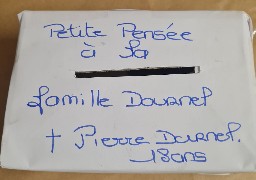 Petite Pensée
à la
famille Dournel
† Pierre Dournel.
18 ans